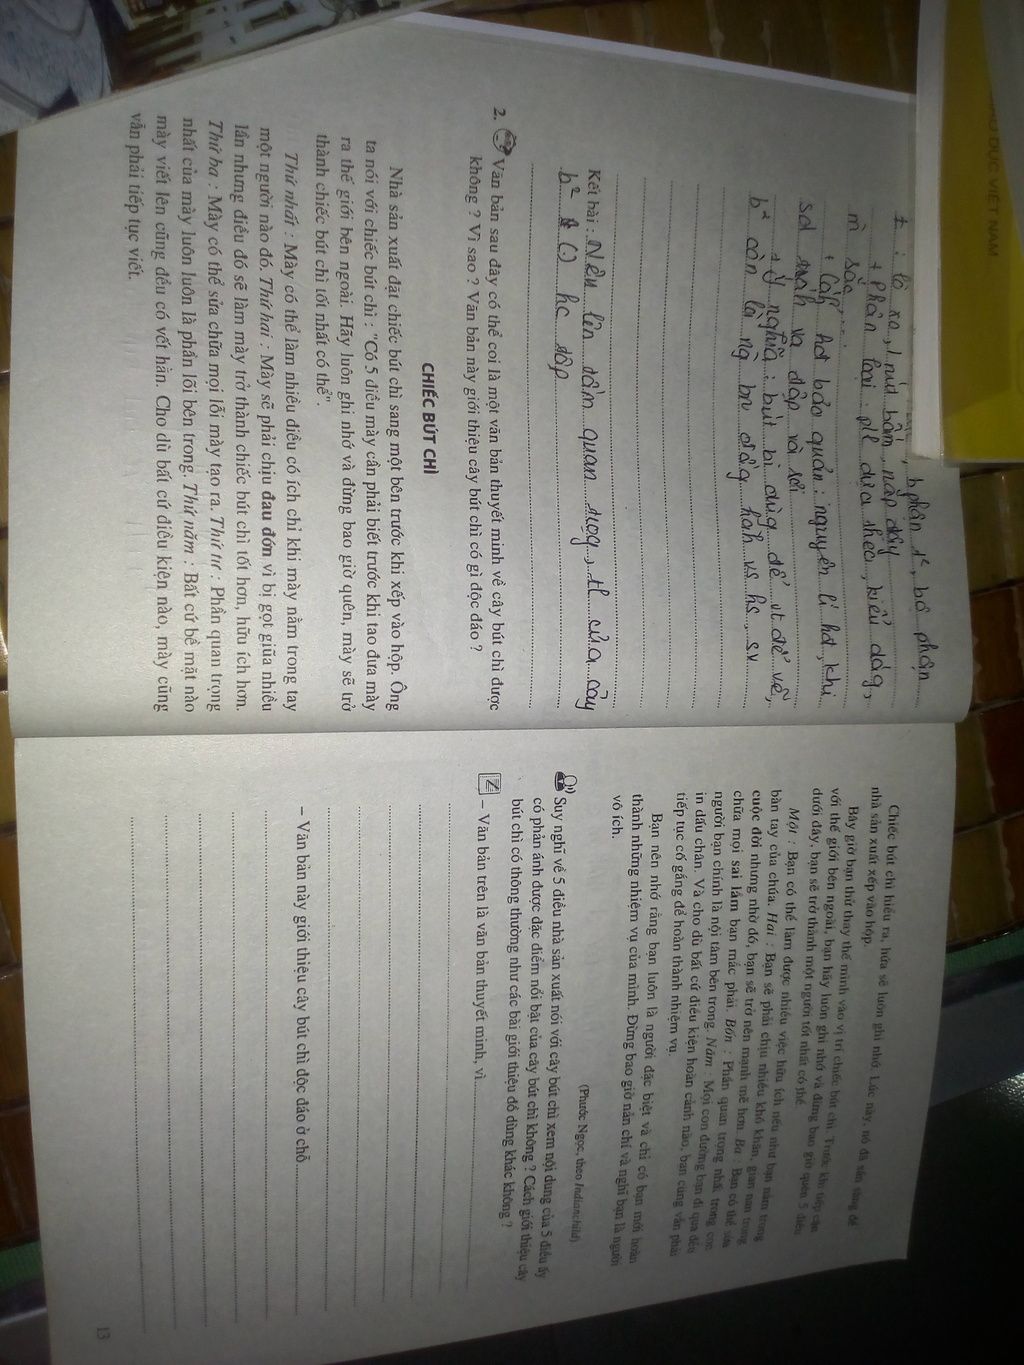 DỤC VIỆT NAM
bphận t², bộ phận
: lò xo, nút bấm, nắp đậy
+ Phân loại: dựa theo kiểu dáng,
+ Cấu hđ bảo quản: nguyên lí hđ, khi
sd tránh va đập và rơi
+ Ý nghĩa: bút bi dùng để vt để vẽ,
b² còn là ng bn đồng hàh vs hs, sv
Kết bài: Nêu lên tầm quan trọng, của cây
b² hc tập
2. Văn bản sau đây có thể coi là một văn bản thuyết minh về cây bút chì được
không ? Vì sao ? Văn bản này giới thiệu cây bút chì có gì độc đáo ?
CHIẾC BÚT CHÌ
Nhà sản xuất đặt chiếc bút chì sang một bên trước khi xếp vào hộp. Ông
ta nói với chiếc bút chì : "Có 5 điều mày cần phải biết trước khi tao đưa mày
ra thế giới bên ngoài. Hãy luôn ghi nhớ và đừng bao giờ quên, mày sẽ trở
thành chiếc bút chì tốt nhất có thể".
Thứ nhất : Mày có thể làm nhiều điều có ích chỉ khi mày nằm trong tay
một người nào đó. Thứ hai : Mày sẽ phải chịu đau đớn vì bị gọt giũa nhiều
lần nhưng điều đó sẽ làm mày trở thành chiếc bút chì tốt hơn, hữu ích hơn.
Thứ ba : Mày có thể sửa chữa mọi lỗi mày tạo ra. Thứ tư : Phần quan trọng
nhất của mày luôn luôn là phần lõi bên trong. Thứ năm : Bất cứ bề mặt nào
mày viết lên cũng đều có vết hằn. Cho dù bất cứ điều kiện nào, mày cũng
vẫn phải tiếp tục viết.
Chiếc bút chì hiểu ra, hứa sẽ luôn ghi nhớ. Lúc này, nó đã sẵn sàng để
nhà sản xuất xếp vào hộp.
Bây giờ bạn thử thay thế mình vào vị trí chiếc bút chì. Trước khi tiếp cận
với thế giới bên ngoài, bạn hãy luôn ghi nhớ và đừng bao giờ quên 5 điều
dưới đây, bạn sẽ trở thành một người tốt nhất có thể.
Một : Bạn có thể làm được nhiều việc hữu ích nếu như bạn nằm trong
bàn tay của chúa. Hai : Bạn sẽ phải chịu nhiều khó khăn, gian nan trong
cuộc đời nhưng nhờ đó, bạn sẽ trở nên mạnh mẽ hơn. Ba : Bạn có thể sửa
chữa mọi sai lầm bạn mắc phải. Bốn : Phần quan trọng nhất trong con
người bạn chính là nội tâm bên trong. Năm : Mọi con đường bạn đi qua đều
in dấu chân. Và cho dù bất cứ điều kiện hoàn cảnh nào, bạn cũng vẫn phải
tiếp tục cố gắng để hoàn thành nhiệm vụ.
Bạn nên nhớ rằng bạn luôn là người đặc biệt và chỉ có bạn mới hoàn
thành những nhiệm vụ của mình. Đừng bao giờ nản chí và nghĩ bạn là người
vô ích.
(Phước Ngọc, theo Indianchild)
Suy nghĩ về 5 điều nhà sản xuất nói với cây bút chì xem nội dung của 5 điều ấy
có phản ánh được đặc điểm nổi bật của cây bút chì không ? Cách giới thiệu cây
bút chì có thông thường như các bài giới thiệu đồ dùng khác không ?
– Văn bản trên là văn bản thuyết minh, vì
– Văn bản này giới thiệu cây bút chì độc đáo ở chỗ
13